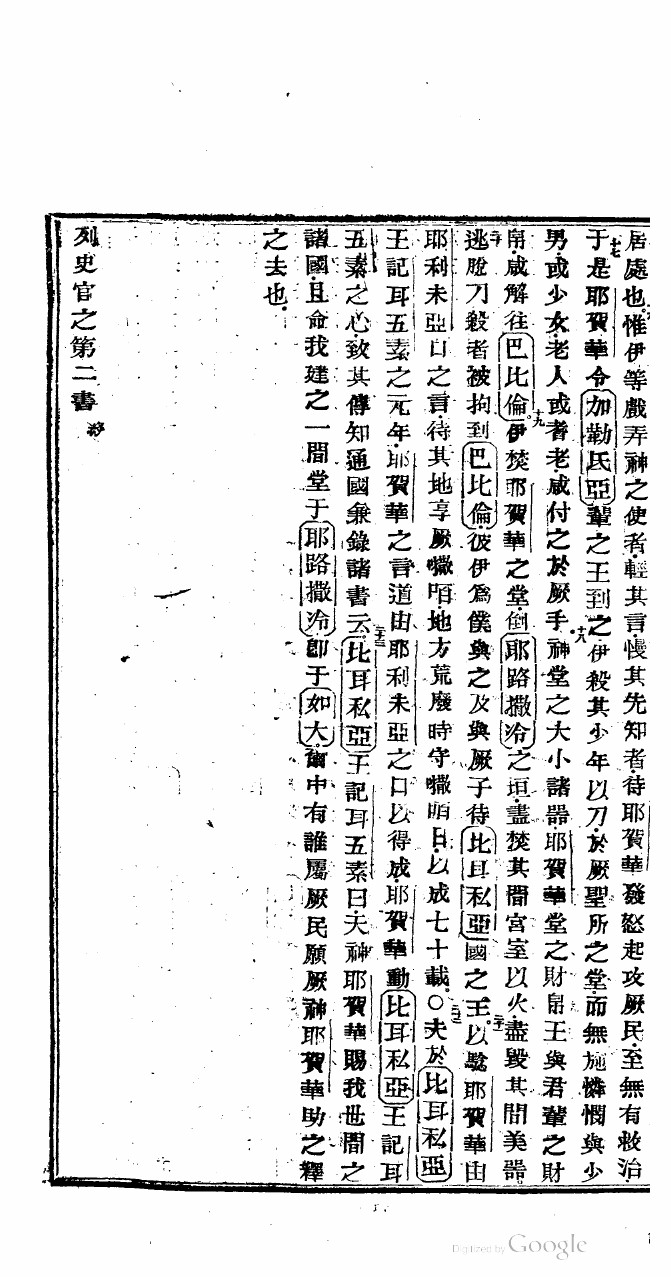 居處也惟伊等戲弄神之使者輕其言慢其先知者待耶賀華發怒起攻厥民至無有救治
十七于是耶賀華令加勒氏亞輩之王到之伊殺其少年以刀於厥聖所之堂而無施憐憫與少
男或少女老人或耆老咸付之於厥手十八神堂之大小諸器耶賀華堂之財帛王與君輩之財
帛咸解往巴比倫十九伊焚耶賀華之堂倒耶路撒冷之垣盡焚其間宮室以火盡毀其間美器
二十逃脫刀殺者被拘到巴比倫彼伊為僕與之及與厥子待比耳私亞國之王二十一以騐耶賀華由
耶利未亞口之言待其地享厥𠹌咟地方荒廢時守𠹌咟日以成七十載○二十二夫於比耳私亞
王記耳五素之元年耶賀華之言道由耶利未亞之口以得成耶賀華動比耳私亞王記耳
五素之心致其傳知通國兼錄諸書云二十三比耳私亞王記耳五素曰天神耶賀華賜我世間之
諸國且命我建之一間堂于耶路撒冷即于如大爾中有誰屬厥民願厥神耶賀華助之釋
之去也
列史官之第二書終
Digitized by Google